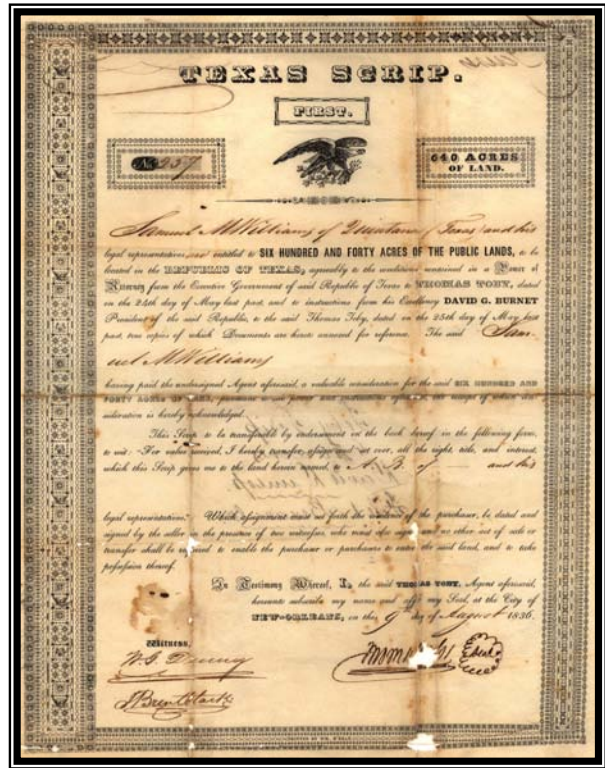 TEXAS SCRIP.
FIRST.
No 237
640 ACRES
OF LAND.
Samuel M Williams of Quintana (Texas) and his
legal representatives are entitled to SIX HUNDRED AND FORTY ACRES OF THE PUBLIC LANDS, to be
located in the REPUBLIC OF TEXAS, agreeably to the conditions contained in a Power of
Attorney from the Executive Government of said Republic of Texas to THOMAS TOBY, dated
on the 24th day of May last past, and to instructions from his Excellency DAVID G. BURNET
President of the said Republic, to the said Thomas Toby, dated on the 25th day of May last
past, true copies of which Documents are hereto annexed for reference. The said Sam
uel M Williams
having paid the undersigned Agent aforesaid, a valuable consideration for the said SIX HUNDRED AND
FORTY ACRES OF LAND, pursuant to said power and instructions the receipt of which
is hereby acknowledged.
This Scrip to be transferable by endorsement on the back hereof in the following form,
to wit: "For value received, I hereby transfer, assign and set over, all the right, title, and interest,
which this Scrip gives me to the land herein named, to A. B. of — and his
legal representatives." Which assignment must set forth the residence of the purchaser, be dated and
signed by the seller in the presence of two witnesses, who must also sign and no other act of sale or
transfer shall be required to enable the purchaser or purchasers to enter the said land, and to take
possession thereof.
In Testimony Whereof, I, the said THOMAS TOBY, Agent aforesaid,
hereunto subscribe my name and affix my Seal, at the City of
NEW-ORLEANS, on this 9th day of August 1836.
Witness,
Seal